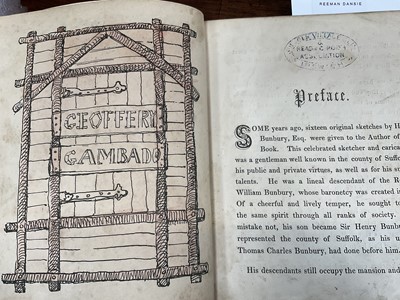 REEMAN DANSIE
GEOFFERY
GAMBADO
READING ROOM
ASSOCIATION
Preface.
SOME years ago, sixteen original sketches by H
Bunbury, Esq. were given to the Author of
Book. This celebrated sketcher and carica
was a gentleman well known in the county of Suffo
his public and private virtues, as well as for his su
talents. He was a lineal descendant of the R
William Bunbury, whose baronetcy was created i
Of a cheerful and lively temper, he sought to
the same spirit through all ranks of society.
mistake not, his son became Sir Henry Bunbu
represented the county of Suffolk, as his u
Thomas Charles Bunbury, had done before him.
His descendants still occupy the mansion and